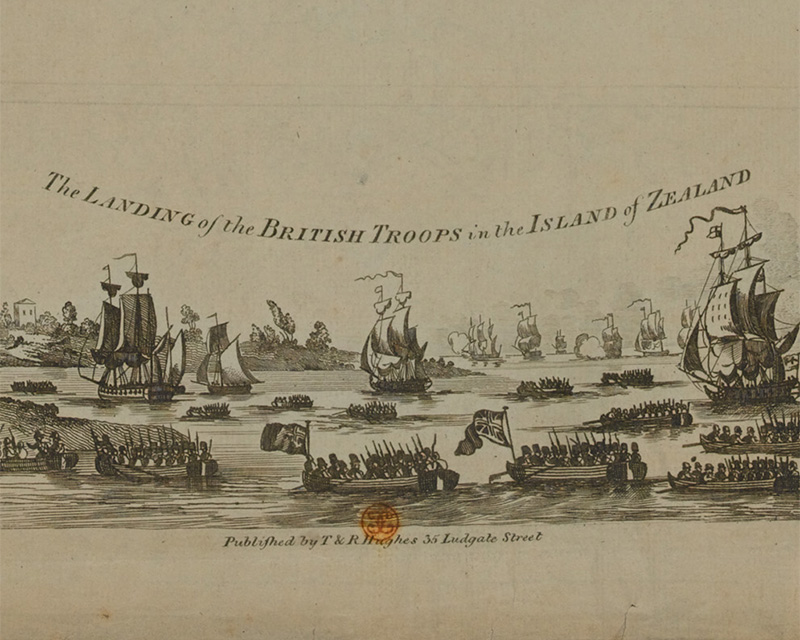 The LANDING of the BRITISH TROOPS in the ISLAND of ZEALAND
Publiſhed by T & R Hughes 35 Ludgate Street